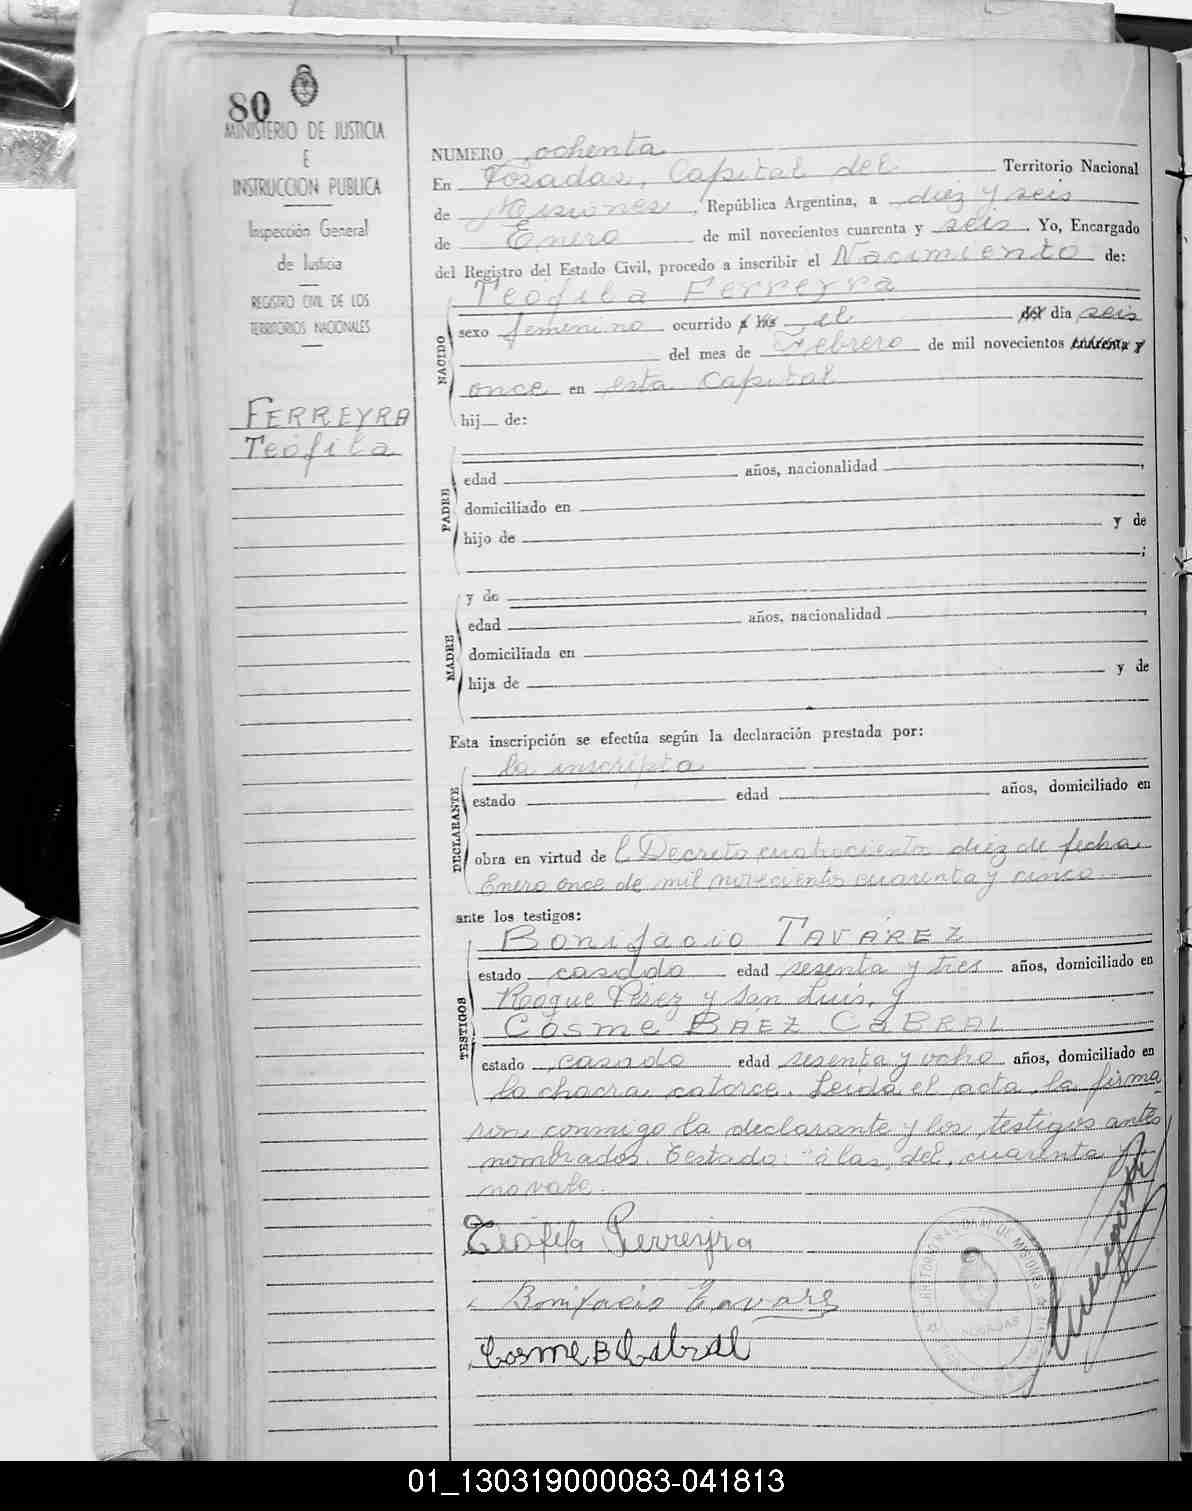 80
MINISTERIO DE JUSTICIA
E
INSTRUCCION PUBLICA
Inspección General
de Justicia
REGISTRO CIVIL DE LOS
TERRITORIOS NACIONALES
FERREYRA
Teófila
NUMERO ochenta
En Posadas, Capital del Territorio Nacional
de Misiones, República Argentina, a diez y seis
de Enero de mil novecientos cuarenta y seis. Yo, Encargado
del Registro del Estado Civil, procedo a inscribir el Nacimiento de:
Teófila Ferreyra
NACIDO
sexo femenino ocurrido a las el del día seis
del mes de Febrero de mil novecientos cuarenta y
once en esta Capital
hij de:
PADRE
edad años, nacionalidad ,
domiciliado en
hijo de y de
;
MADRE
y de
edad años, nacionalidad ,
domiciliada en
hija de y de
Esta inscripción se efectúa según la declaración prestada por:
DECLARANTE
la inscripta
estado edad años, domiciliado en
obra en virtud de l Decreto cuatrociento diez de fecha
Enero once de mil novecientos cuarenta y cinco
ante los testigos:
TESTIGOS
Bonifacio TAVÁREZ
estado casado edad sesenta y tres años, domiciliado en
Roque Pérez y San Luis, y
Cosme BÁEZ CABRAL
estado casado edad sesenta y ocho años, domiciliado en
la chacra catorce. Leída el acta, la firma
ron conmigo la declarante y los testigos antes
nombrados. Testado: "a las, del, cuarenta y"
no vale.
Teófila Ferreyra
Bonifacio Tavarez
Cosme B Cabral
POSADAS
01_130319000083-041813